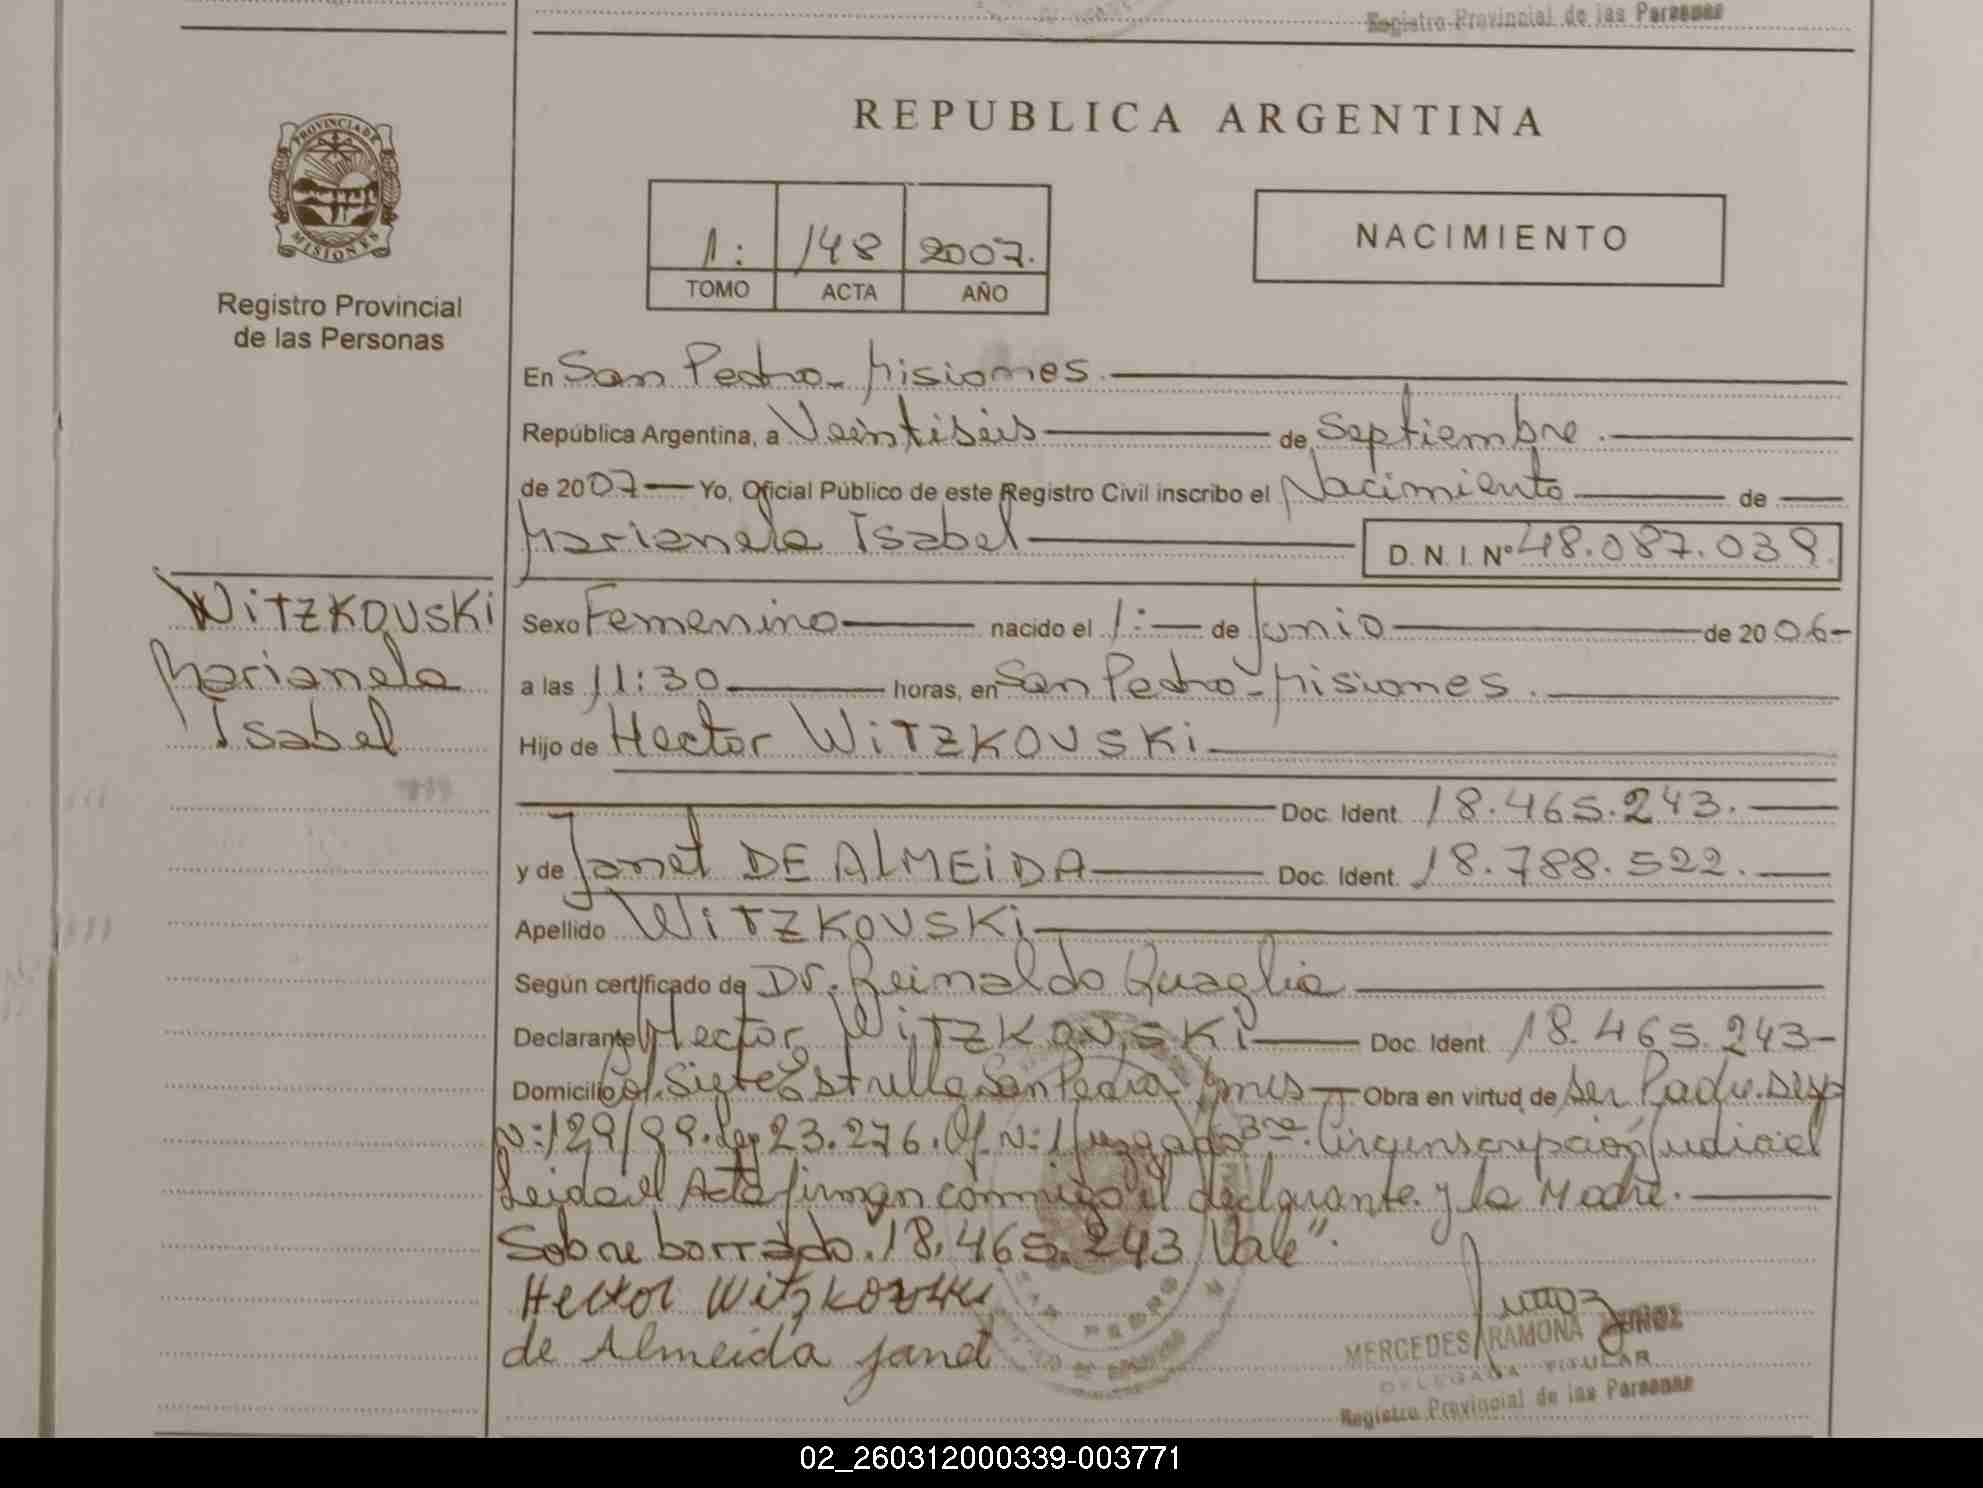 Registro Provincial de las Personas
REPUBLICA ARGENTINA
PROVINCIA DE
MISIONES
Registro Provincial
de las Personas
1: 148 2007.
TOMO ACTA AÑO
NACIMIENTO
En San Pedro - Misiones.
República Argentina, a Veintiséis de Septiembre.
de 2007 Yo, Oficial Público de este Registro Civil inscribo el Nacimiento de
Marianela Isabel D. N. I. Nº 48.087.039
WITZKOVSKI
Marianela
Isabel
Sexo Femenino nacido el 1: de Junio de 2006-
a las 11:30 horas, en San Pedro - Misiones.
Hijo de Hector WITZKOVSKI
Doc. Ident. 18.465.243.
y de Janet DE ALMEIDA Doc. Ident. 18.788.522.
Apellido WITZKOVSKI
Según certificado de Dr. Reinaldo Quaglia
Declarante Hector WITZKOVSKI Doc. Ident. 18.465.243-
Domicilio Siete Estrella San Pedro Mnes Obra en virtud de ser Padre. Disp
N:129/99. Ley 23.276. Of. N:1 Juzgado 3ra. Circunscripción Judicial
Leida el Acta firman conmigo el declarante y la Madre.
Sobre borrado "18.465.243 Vale".
Hector Witzkovski
de Almeida Janet
MERCEDES RAMONA MUÑOZ
DELEGADA TITULAR
Registro Provincial de las Personas
02_260312000339-003771